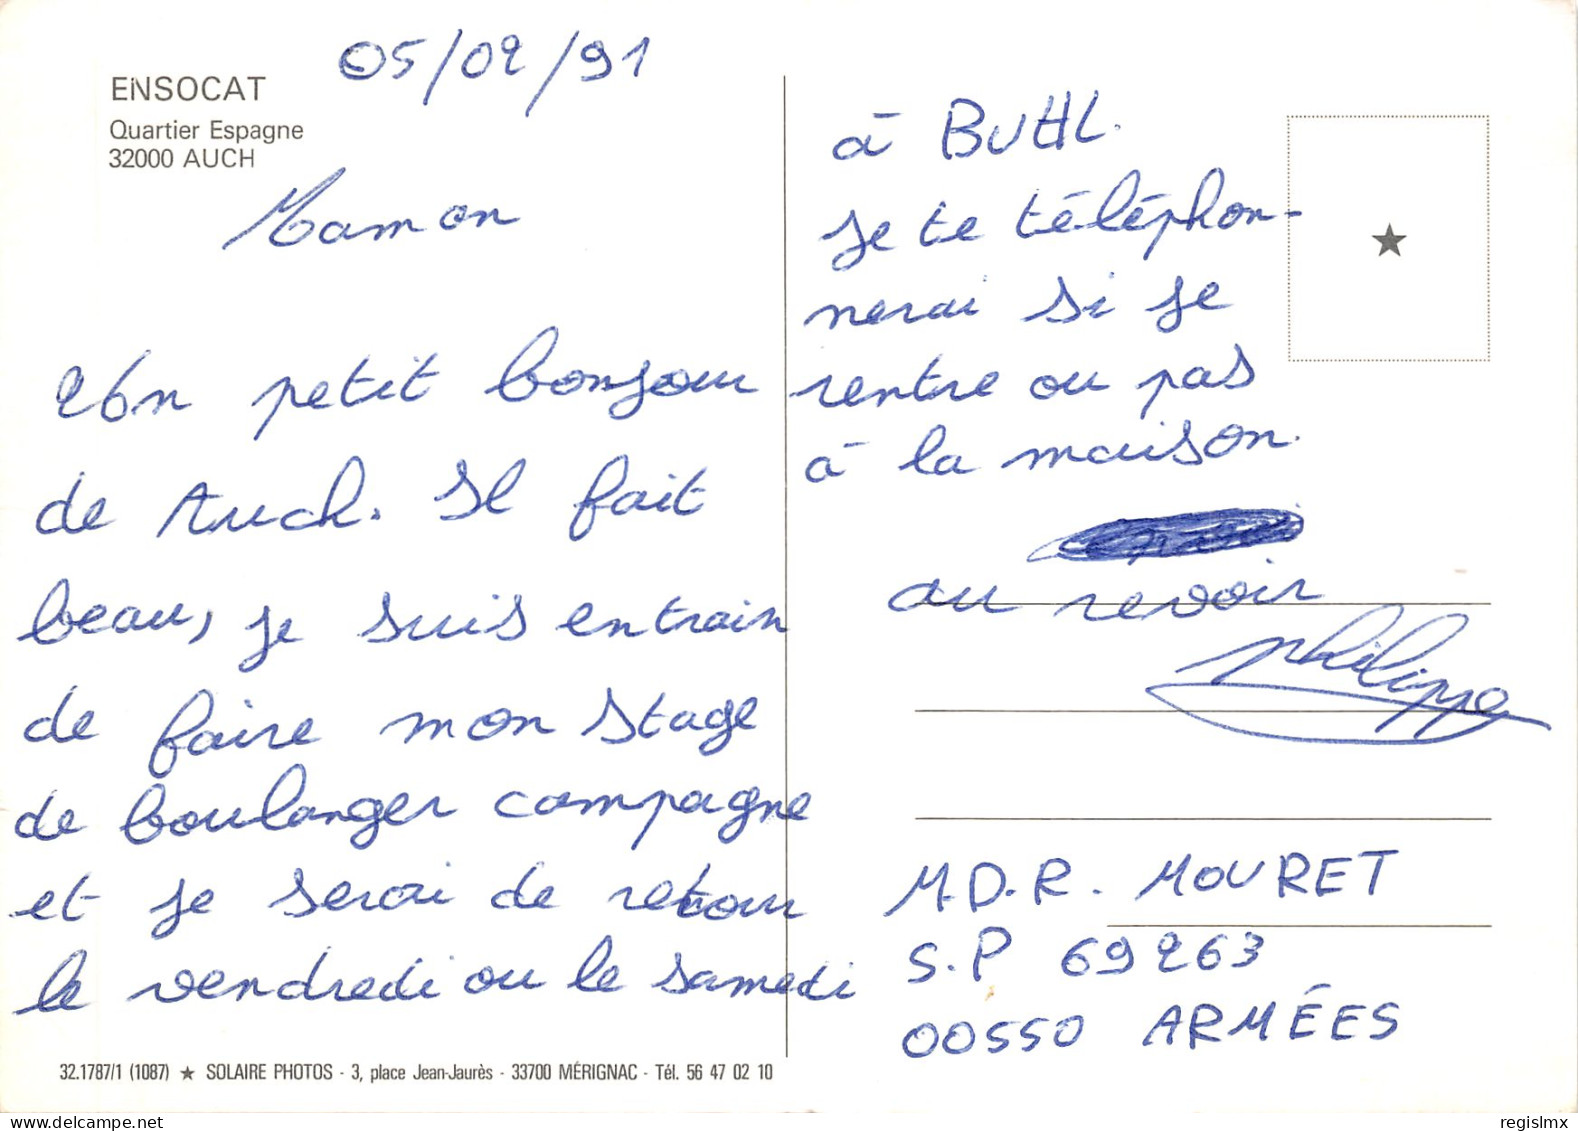 05/02/91
ENSOCAT
Quartier Espagne
32000 AUCH
Maman
Un petit bonjour
de Auch. Il fait
beau, je suis entrain
de faire mon stage
de boulanger campagne
et je serai de retour
le vendredi ou le samedi
à BUHL.
je te téléphon-
nerai si je
rentre ou pas
à la maison.
au revoir
Philippe
M.D.R. MOURET
S.P 69263
00550 ARMÉES
32.1787/1 (1087) ★ SOLAIRE PHOTOS - 3, place Jean-Jaurès - 33700 MÉRIGNAC - Tél. 56 47 02 10
regislmx